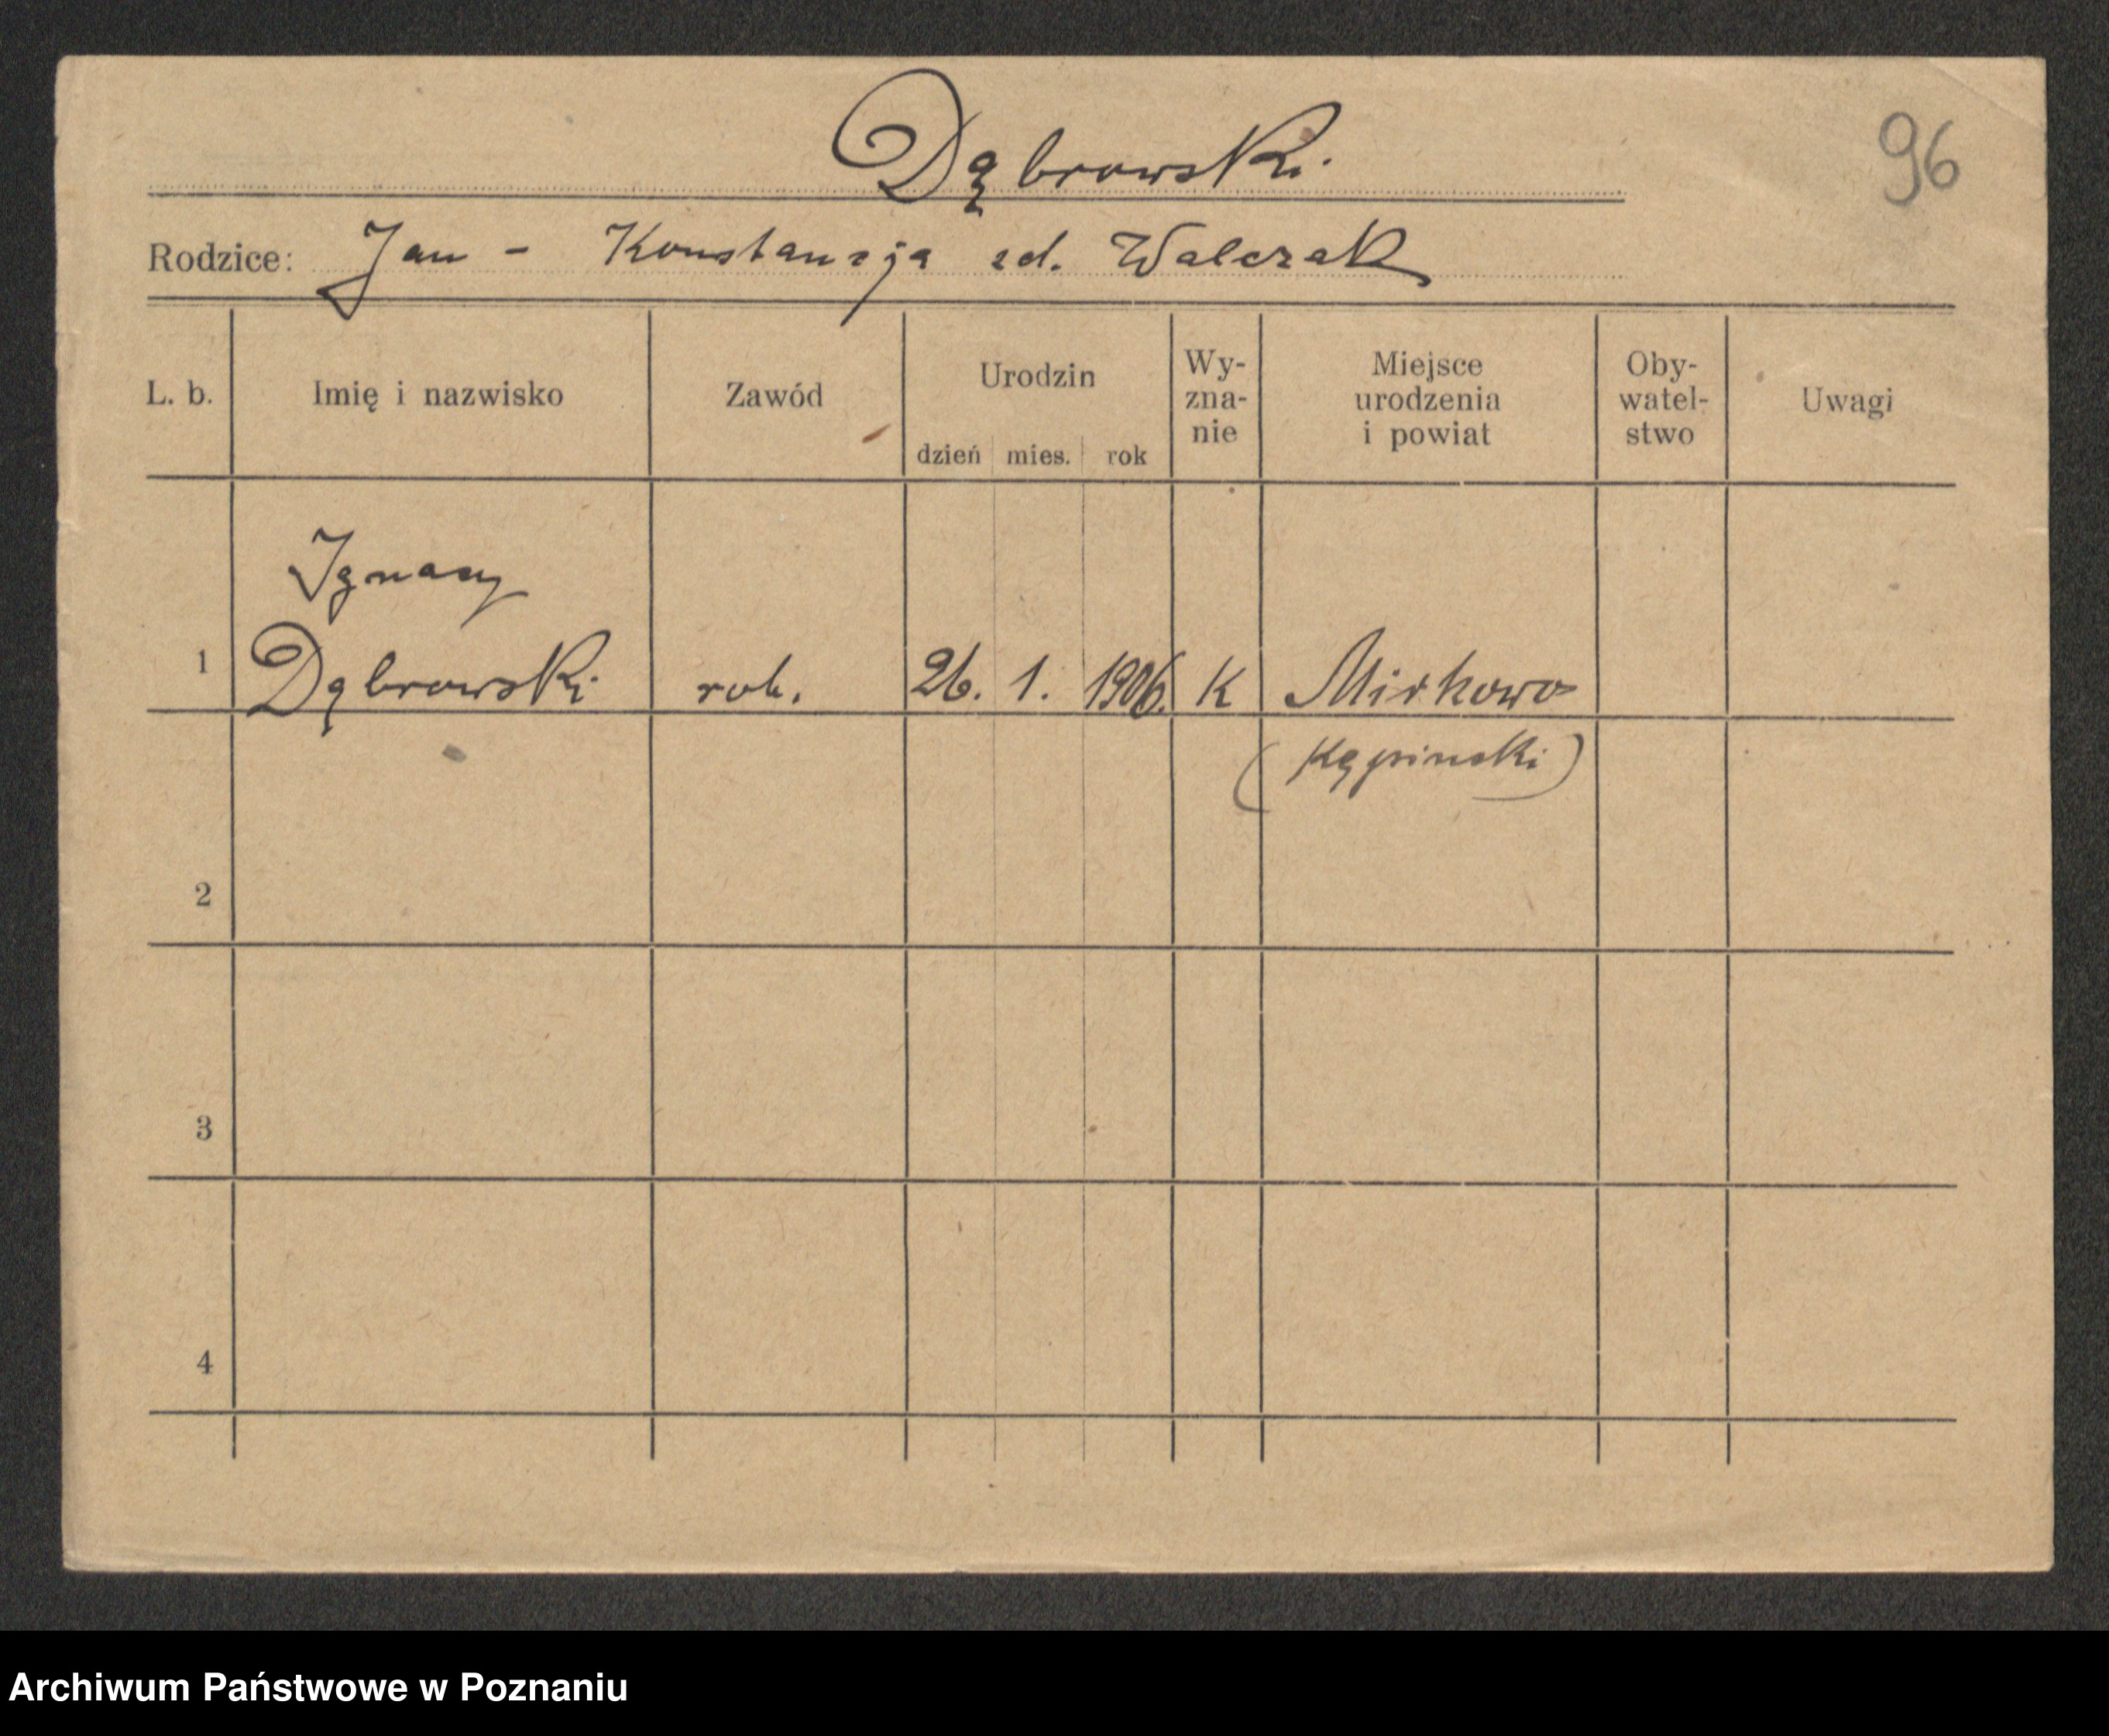 Dąbrowski
96
Rodzice: Jan - Konstancja zd. Walczak
L. b. Imię i nazwisko Zawód Urodzin dzień mies. rok Wy-zna-nie Miejsce urodzenia i powiat Oby-watel-stwo Uwagi
Ignacy
1 Dąbrowski rob. 26. 1. 1906. K
(Kępiński)
2
3
4
Archiwum Państwowe w Poznaniu